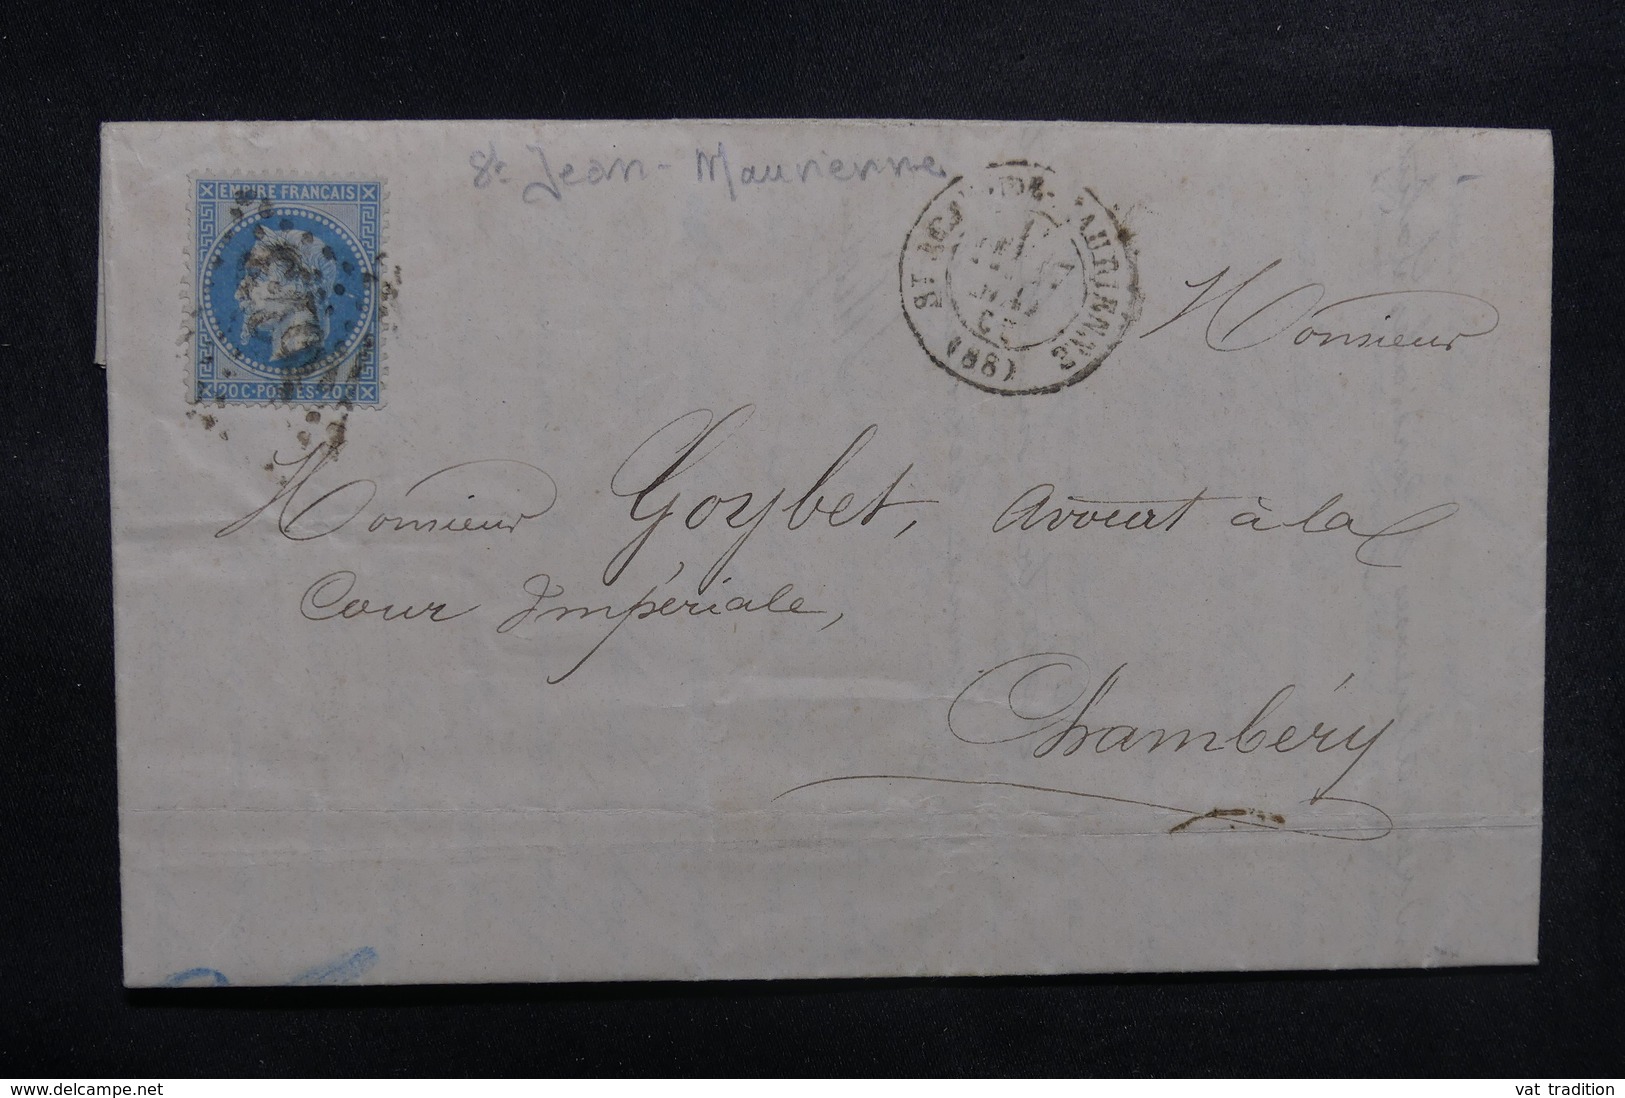 St Jean - Maurienne
EMPIRE FRANCAIS
20 C · POSTES · 20 C
ST JEAN-DE-MAURIENNE
(88)
Monsieur
Monsieur Goybet, Avouat à la
Cour Impériale,
Chambéry
www.delcampe.net
vat tradition